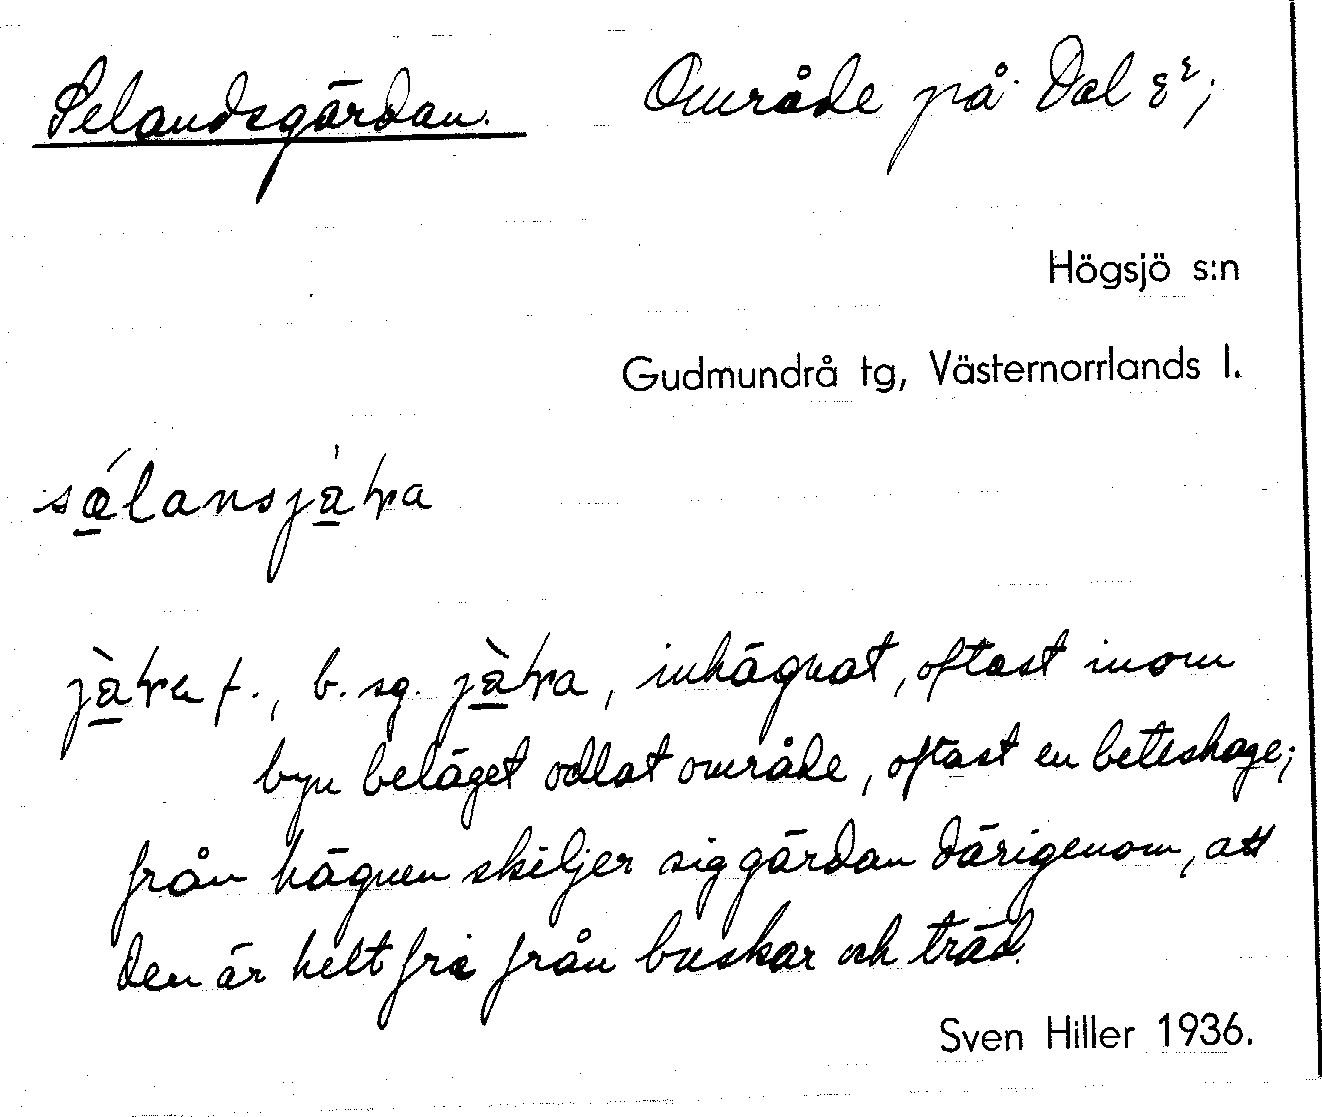 Selandsgärdan. Område på Dal 8²;
Högsjö s:n
Gudmundrå tg, Västernorrlands l.
b. sg. , inhägnat, oftast inom
byn beläget odlat område, oftast en beteshage;
från hägnen skiljer sig gärdan därigenom, att
den är helt fri från buskar och träd.
Sven Hiller 1936.